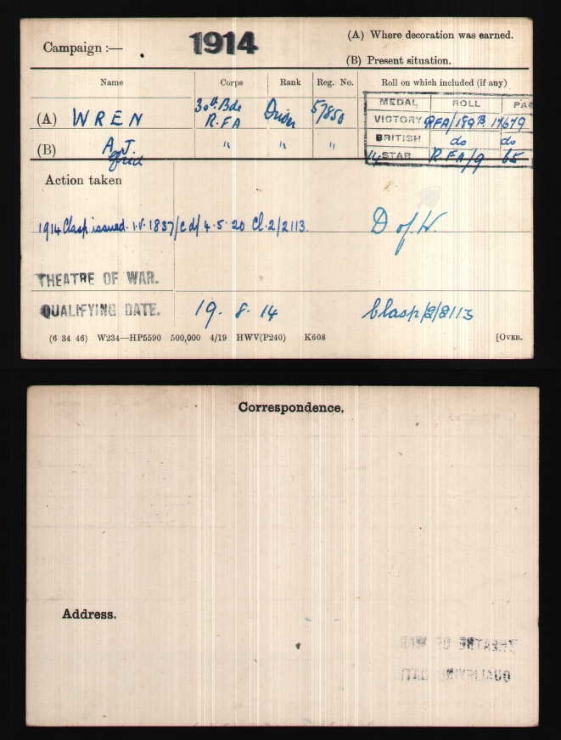 Campaign :— 1914 (A) Where decoration was earned.
(B) Present situation.
Name Corps Rank Reg. No. Roll on which included (if any)
MEDAL ROLL PAG
(A) WREN 30th Bde R.F.A Driver 57850 VICTORY RFA/189B 17679
BRITISH do do
(B) A. J. " " " 14 STAR RFA/9 65
Alfred
Action taken
1914 Clasp issued. I.V. 1837/E d/ 4.5.20 Cl.2/2113. D of W.
THEATRE OF WAR.
QUALIFYING DATE. 19. 8. 14 Clasp/2/8113
(6 34 46) W234—HP5590 500,000 4/19 HWV(P240) K608 [OVER.
Correspondence.
Address.
THEATRE OF WAR
QUALIFYING DATE